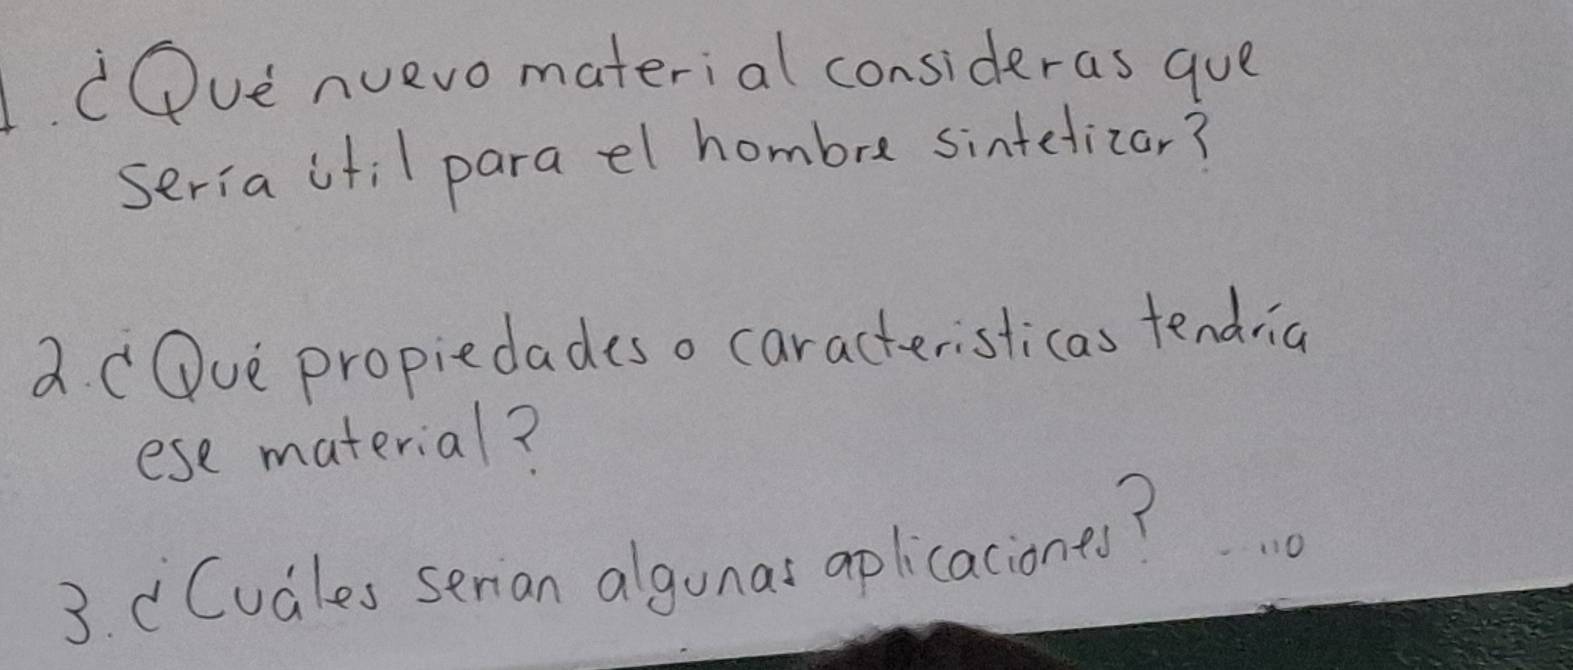 1. ¿Qué nuevo material consideras que
sería útil para el hombre sintetizar?
2. ¿Qué propiedades o caracteristicas tendría
ese material?
3. ¿Cuáles serian algunas aplicaciones?